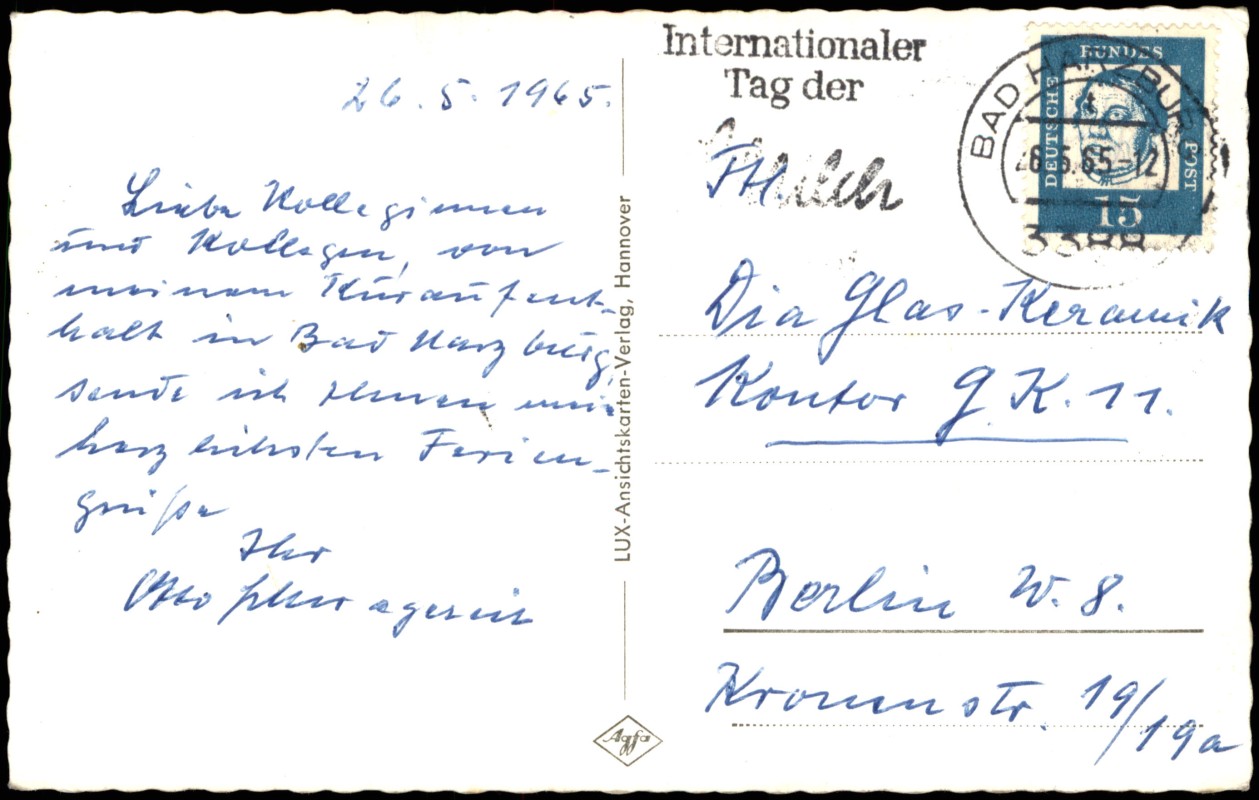 26.5.1965.
Liebe Kolleginnen
und Kollegen, von
meinem Kuraufent-
halt in Bad Harzburg,
sende ich Ihnen mein
herzlichsten Ferien-
grüße
Ihr
Otto
LUX-Ansichtskarten-Verlag, Hannover
Agfa
Internationaler
Tag der
Milch
BAD HARZBURG
26.5.65-12
3388
DEUTSCHE BUNDES POST
15
Dia Glas-Keramik
Kontor G.K. 11.
Berlin W. 8.
Kronenstr. 19/
19a